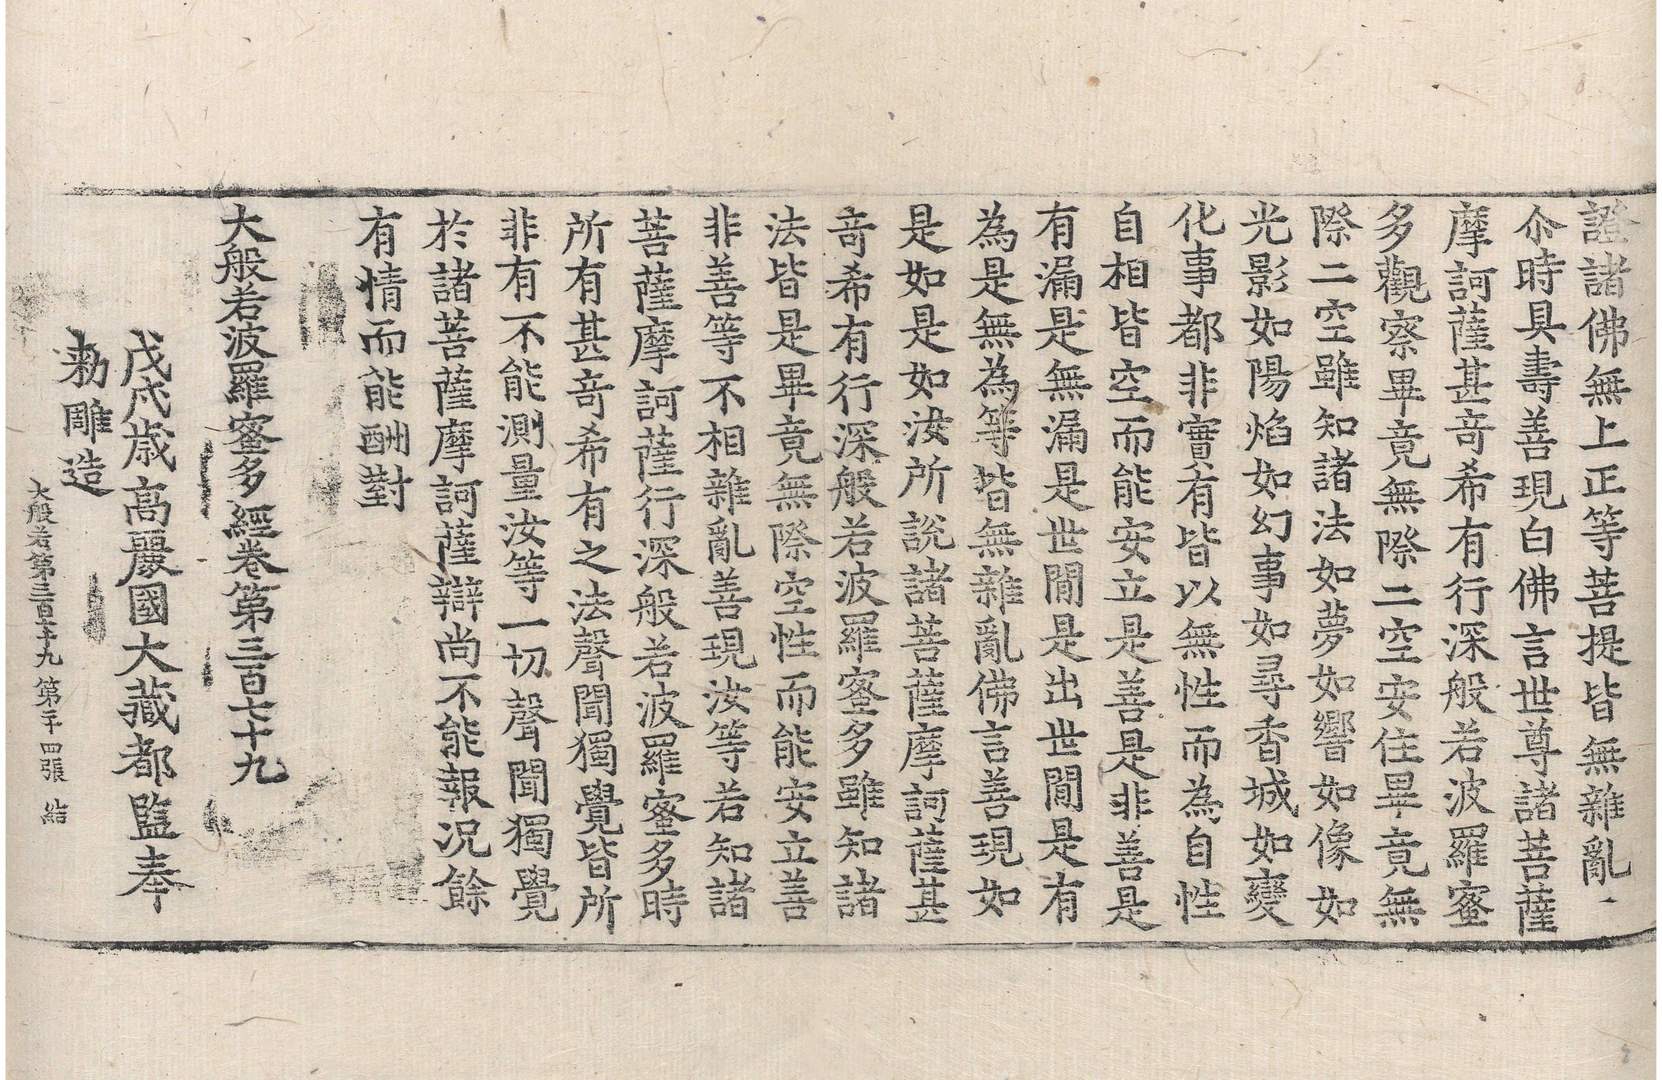 證諸佛無上正等菩提皆無雜亂
尒時具壽善現白佛言世尊諸菩薩
摩訶薩甚竒希有行深般若波羅蜜
多觀察畢竟無際二空安住畢竟無
際二空雖知諸法如夢如響如像如
光影如陽焰如幻事如尋香城如變
化事都非實有皆以無性而為自性
自相皆空而能安立是善是非善是
有漏是無漏是世閒是出世閒是有
為是無為等皆無雜亂佛言善現如
是如是如汝所說諸菩薩摩訶薩甚
竒希有行深般若波羅蜜多雖知諸
法皆是畢竟無際空性而能安立善
非善等不相雜亂善現汝等若知諸
菩薩摩訶薩行深般若波羅蜜多時
所有甚竒希有之法聲聞獨覺皆所
非有不能測量汝等一切聲聞獨覺
於諸菩薩摩訶薩辯尚不能報况餘
有情而能酬對
大般若波羅蜜多經卷第三百七十九
戊戌歲高麗國大藏都監奉
勑雕造
大般若第三百七十九 第二十四張 結